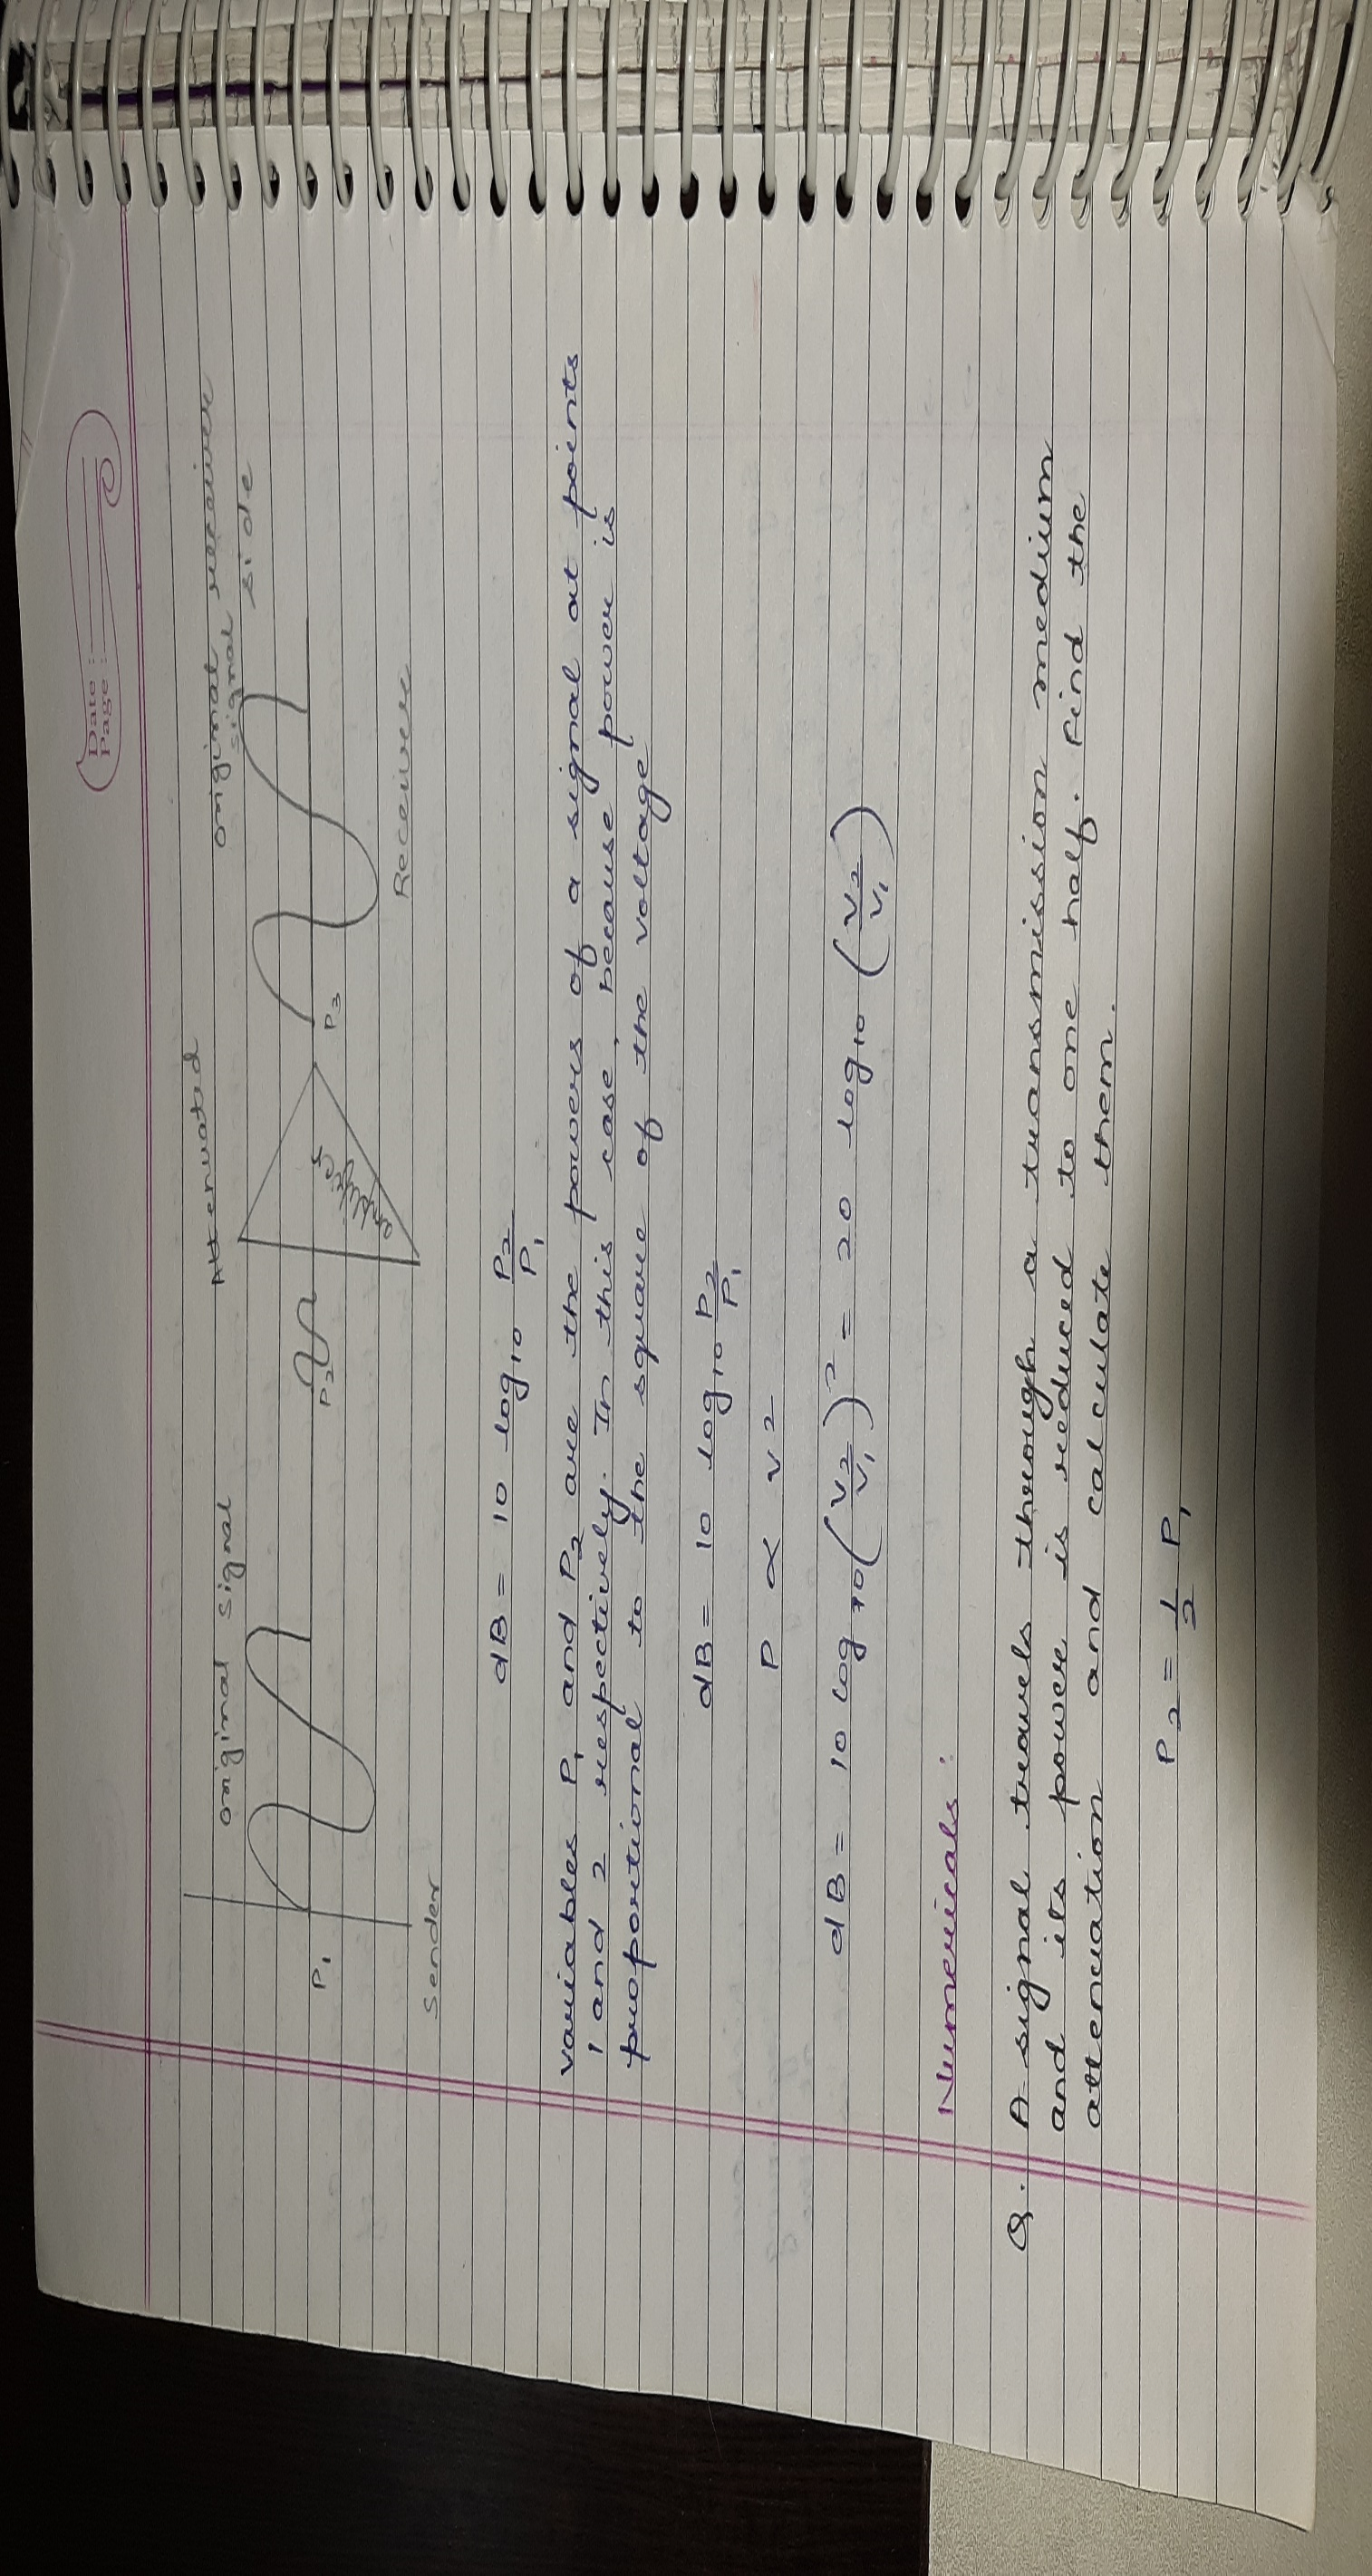 Date :
Page :
original signal
Attenuated
original receiver
signal side
P1
P2
amplifier
P3
Sender
Receiver
dB = 10 log10 P2/P1
variables P1 and P2 are the powers of a signal at points
1 and 2 respectively. In this case, because power is
proportional to the square of the voltage
dB = 10 log10 P2/P1
P ∝ v2
dB = 10 log10 (v2/v1)² = 20 log10 (v2/v1)
Numericals :
Q. A signal travels through a transmission medium
and its power is reduced to one half. Find the
attenuation and calculate them.
P2 = 1/2 P1